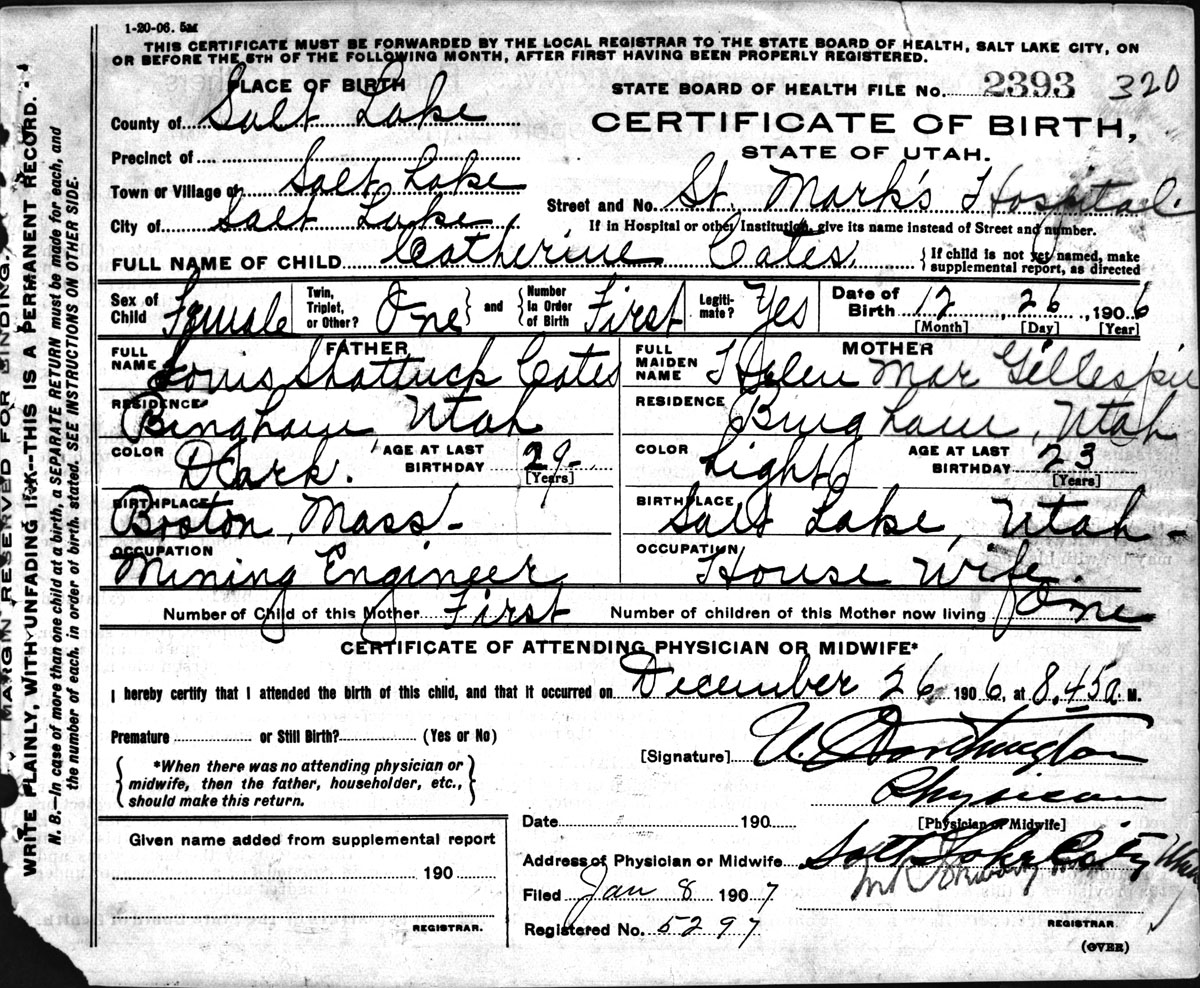 1-20-06. 5M
THIS CERTIFICATE MUST BE FORWARDED BY THE LOCAL REGISTRAR TO THE STATE BOARD OF HEALTH, SALT LAKE CITY, ON
OR BEFORE THE 5TH OF THE FOLLOWING MONTH, AFTER FIRST HAVING BEEN PROPERLY REGISTERED.
PLACE OF BIRTH
STATE BOARD OF HEALTH FILE No. 2393 320
County of Salt Lake
CERTIFICATE OF BIRTH,
STATE OF UTAH.
Precinct of
Town or Village of Salt Lake
Street and No. St. Mark's Hospital.
City of Salt Lake
If in Hospital or other Institution, give its name instead of Street and number.
FULL NAME OF CHILD Catherine Cates
{ If child is not yet named, make
supplemental report, as directed
Sex of Child Female
Twin, Triplet, or Other? One and Number In Order of Birth First
Legiti-mate? Yes
Date of Birth 12, 26, 1906
[Month] [Day] [Year]
FATHER
FULL NAME Louis Shattuck Cates
MOTHER
FULL MAIDEN NAME Helen Mar Gillespie
RESIDENCE Bingham, Utah
RESIDENCE Bingham, Utah
COLOR Dark. AGE AT LAST BIRTHDAY 29 [Years]
COLOR Light AGE AT LAST BIRTHDAY 23 [Years]
BIRTHPLACE Boston, Mass.
BIRTHPLACE Salt Lake, Utah
OCCUPATION Mining Engineer
OCCUPATION House Wife.
Number of Child of this Mother First Number of children of this Mother now living One
CERTIFICATE OF ATTENDING PHYSICIAN OR MIDWIFE*
I hereby certify that I attended the birth of this child, and that it occurred on December 26 1906, at 8.45 a M.
Premature or Still Birth? (Yes or No)
[Signature] U. Worthington
*When there was no attending physician or
midwife, then the father, householder, etc.,
should make this return.
Physician
[Physician or Midwife]
Date 190
Given name added from supplemental report
190
REGISTRAR.
Address of Physician or Midwife Salt Lake City Utah
Filed Jan 8 1907
Registered No. 5297
REGISTRAR.
(OVER)
MARGIN RESERVED FOR BINDING.
WRITE PLAINLY, WITH UNFADING INK--THIS IS A PERMANENT RECORD.
N. B.—In case of more than one child at a birth, a SEPARATE RETURN must be made for each, and
the number of each, in order of birth, stated. SEE INSTRUCTIONS ON OTHER SIDE.